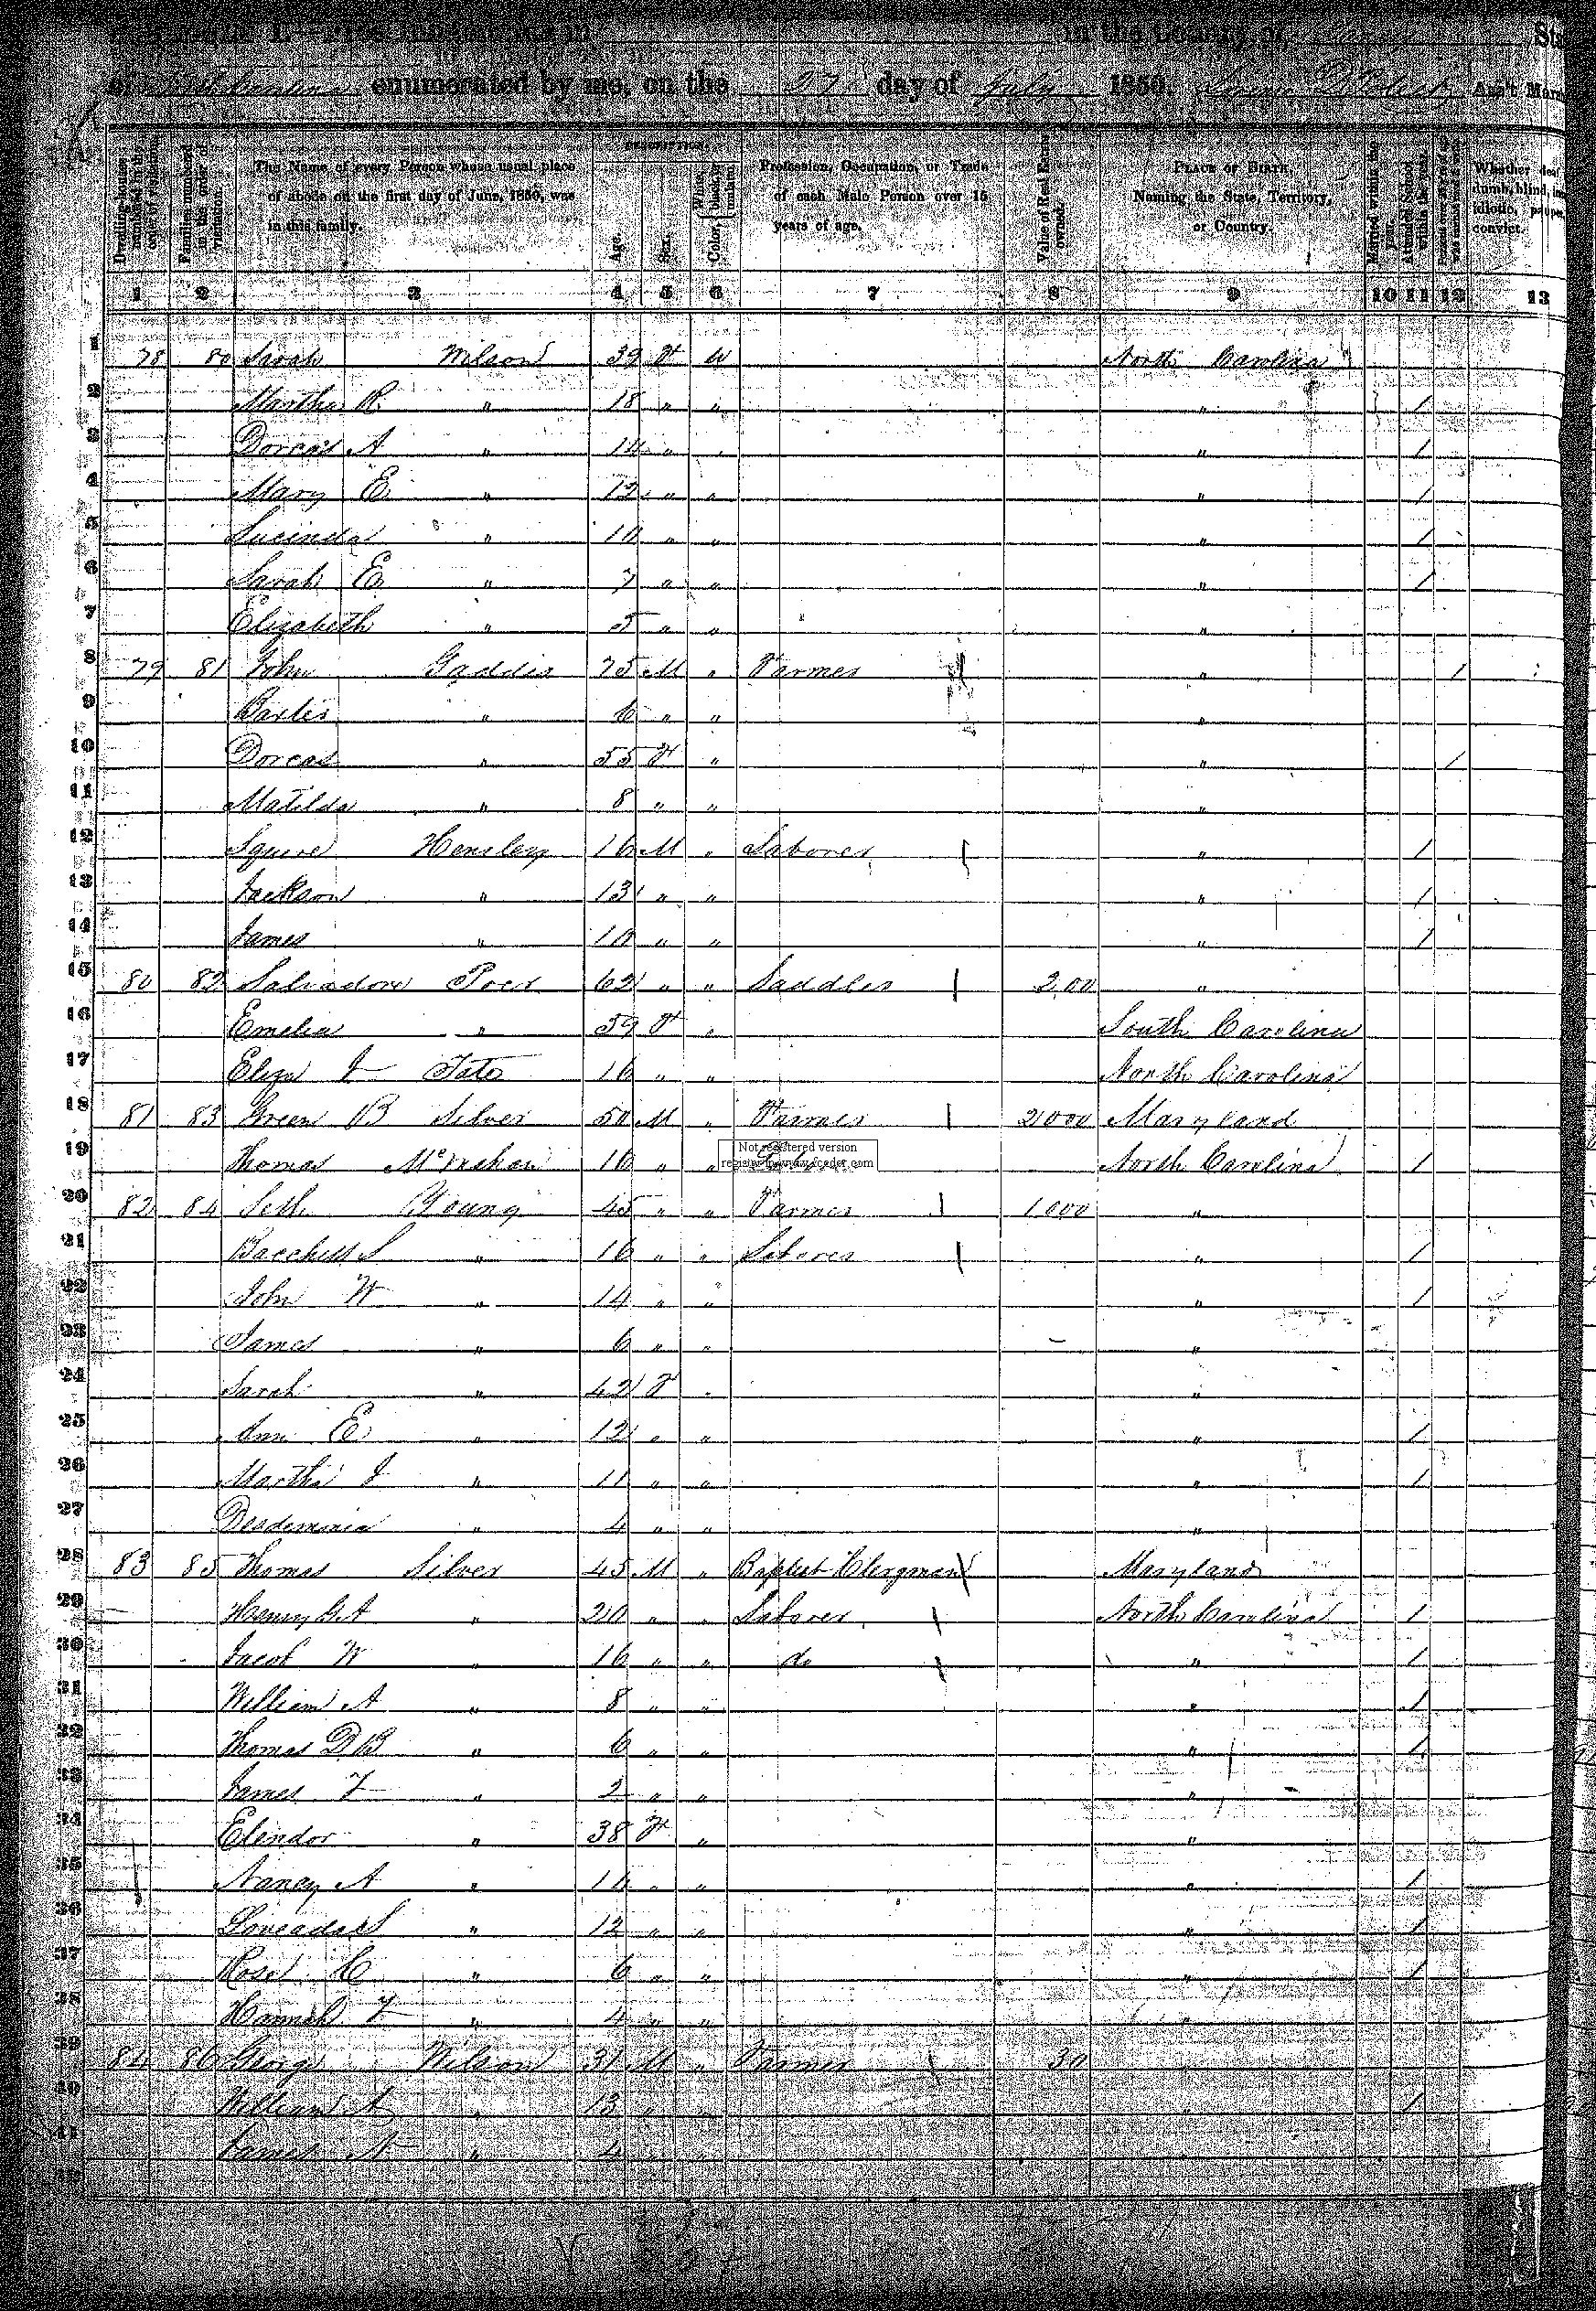 in the County of
of enumerated by me, on the 27 day of July 1850. Ass't Mars
Dwelling-houses numbered in the order of visitation.
Families numbered in the order of visitation.
The Name of every Person whose usual place of abode on the first day of June, 1850, was in this family.
DESCRIPTION.
Age.
Sex.
Color, White, black, or mulatto.
Profession, Occupation, or Trade of each Male Person over 15 years of age.
Value of Real Estate owned.
PLACE OF BIRTH, Naming the State, Territory, or Country.
Married within the year.
Attended School within the year.
Whether deaf, dumb, blind, idiotic, convict.
1 2 3 4 5 6 7 8 9 10 11 12 13
1 78 80 Sarah Wilson 39 F W North Carolina
2 Martha R. " 18 " " " 1
3 Dorcas A " 14 " " " 1
4 Mary E " 12 " " " 1
5 Lucinda " 10 " " " 1
6 Sarah E " 7 " " " 1
7 Elizabeth " 5 " " "
8 79 81 John Gaddis 75 M " Farmer " 1
9 " 6 " " "
10 Dorcas " 55 F " " 1
11 Matilda " 8 " " "
12 Squire Hensley 16 M " Laborer " 1
13 Jackson " 13 " " " 1
14 James " 10 " " " 1
15 80 82 " " Saddler 200 "
16 Emelia " 59 F " South Carolina
17 Eliza J Tate 16 " " North Carolina
18 81 83 Green B Silver 50 M " Farmer 2000 Maryland
Not registered version
19 Thomas McMahan 16 " " North Carolina 1
20 82 84 Seth Young 45 " " Farmer 1000 "
21 S " 16 " " Laborer " 1
22 John W " 14 " " " 1
23 James " 6 " " "
24 Sarah " 42 F " "
25 Ann E " 12 " " " 1
26 Martha J " 11 " " " 1
27 Desdemonia " 4 " " "
28 83 85 Thomas Silver 45 M " Baptist Clergman Maryland
29 Henry G. A " 20 " " Laborer North Carolina 1
30 Jacob W " 16 " " do " 1
31 William A " 8 " " " 1
32 Thomas D. B " 6 " " " 1
33 James F " 2 " " "
34 Elendor " 38 F " "
35 Nancy A " 14 " " " 1
36 S " 12 " " " 1
37 C " 6 " " " 1
38 Hannah F " 4 " " "
39 84 86 George Wilson 31 M " Farmer 30 "
40 William A " 13 " " " 1
41 James " 4